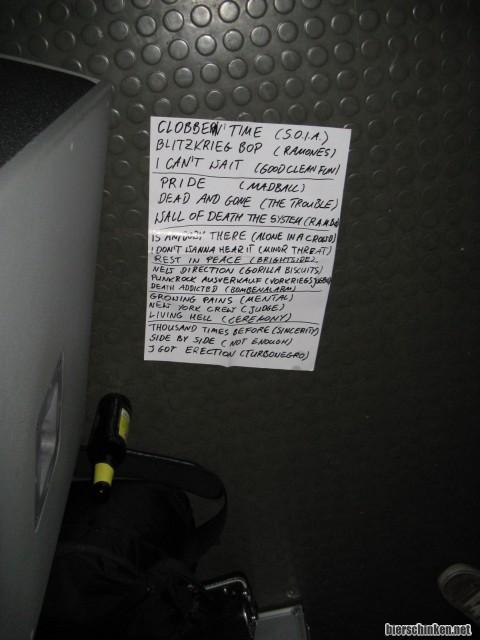 CLOBBERIN' TIME (S.O.I.A.)
BLITZKRIEG BOP (RAMONES)
I CAN'T WAIT (GOOD CLEAN FUN)
PRIDE (MADBALL)
DEAD AND GONE (THE TROUBLE)
WALL OF DEATH THE SYSTEM (RAMBO
IS ANYBODY THERE (ALONE IN A CROWD)
I DON'T WANNA HEAR IT (MINOR THREAT)
REST IN PEACE (BRIGHTSIDE)
NEW DIRECTION (GORILLA BISCUITS)
PUNKROCK AUSVERKAUF (VORKRIEGSJUGEND)
DEATH ADDICTED (BOMBENALARM)
GROWING PAINS (MENTAL)
NEW YORK CREW (JUDGE)
LIVING HELL (CEREMONY)
THOUSAND TIMES BEFORE (SINCERITY)
SIDE BY SIDE (NOT ENOUGH)
I GOT ERECTION (TURBONEGRO)
bierschinken.net